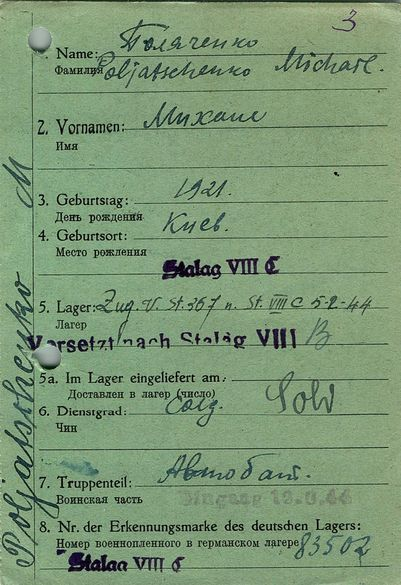 3
1. Name: Поляченко
Фамилия Poljatschenko Michael.
2. Vornamen: Михаил
Имя
3. Geburtstag: 1921.
День рождения
4. Geburtsort: Киев.
Место рождения
Stalag VIII C
5. Lager: Zug. V. St. 367 n. St. VIII C 5-2-44
Лагер
Versetzt nach Stalag VIII B
5a. Im Lager eingeliefert am:
Доставлен в лагер (число)
6. Dienstgrad: Sold
Чин
7. Truppenteil: Автобат.
Воинская часть
8. Nr. der Erkennungsmarke des deutschen Lagers:
Номер военнопленного в германском лагере 83502
Stalag VIII C
Poljatschenko M